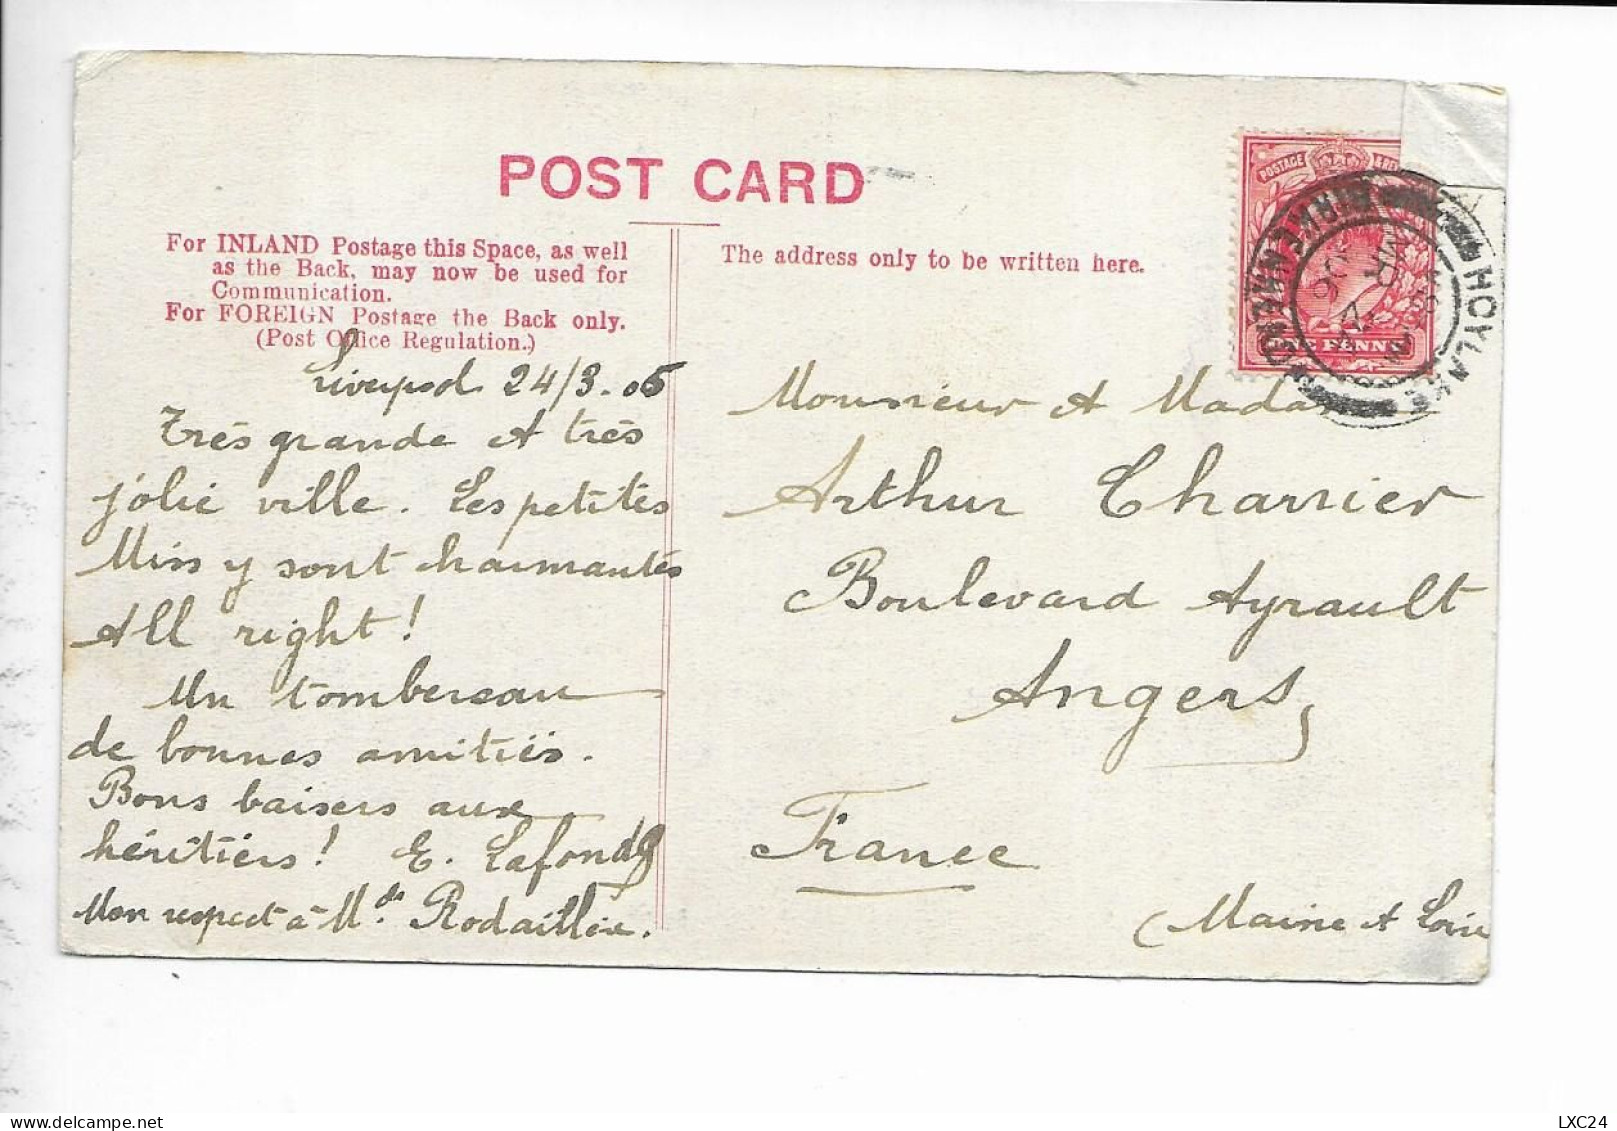 POST CARD
For INLAND Postage this Space, as well
as the Back, may now be used for
Communication.
For FOREIGN Postage the Back only.
(Post Office Regulation.)
The address only to be written here.
POSTAGE
PENNY
BIRKENHEAD
HOYLAKE
MR 24
06
Liverpool 24/3.06
Très grande et très
jolie ville. Les petites
Miss y sont charmantes
All right!
Un tombereau
de bonnes amitiés.
Bons baisers aux
héritiers! E. Lafond
Mon respect à Mde
Monsieur et Madame
Arthur Charrier
Boulevard Ayrault
Angers,
France
(Maine et Loire
LXC24